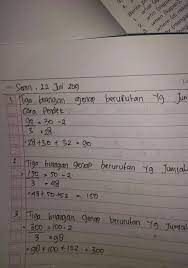 Senin, 22 Juli 2019
1. Tiga bilangan genap berurutan yg Jum
Cara Pendek
90 = 30 - 2
3 = 28
= 28 + 30 + 32 = 90
2. Tiga bilangan genap berurutan yg Jumlah
= 150 = 50 - 2
3 = 48
= 48 + 50 + 52 = 150
3. Tiga bilangan genap berurutan yg Jumla
= 300 = 100 - 2
3 = 98
= 98 + 100 + 102 = 300